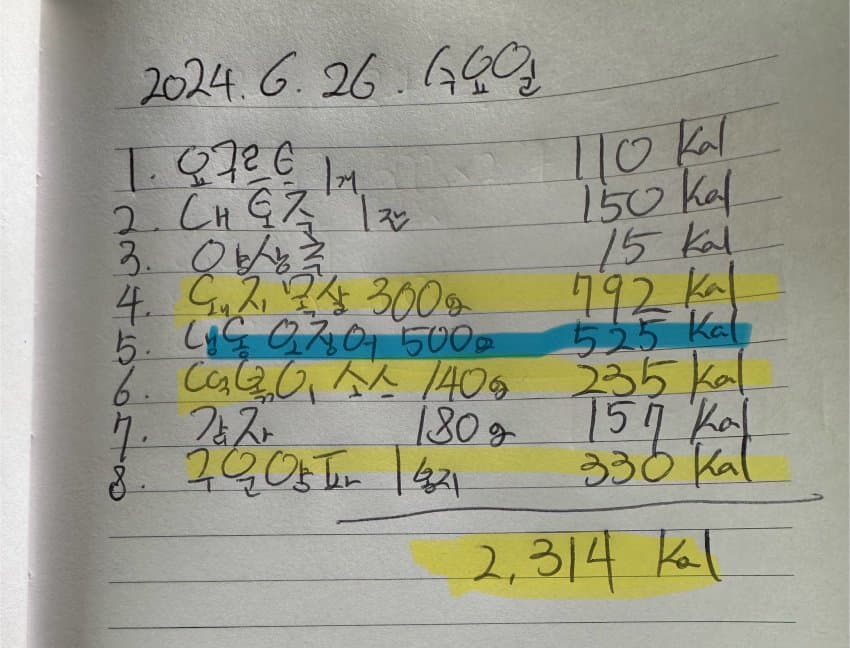 2024. 6. 26. 수요일
1. 요구르트 1개 110 Kal
2. 내 죽 1 150 Kal
3. 양상추 15 Kal
4. 돼지 목살 300g 792 Kal
5. 냉동 오징어 500g 525 Kal
6. 떡볶이 소스 140g 235 Kal
7. 감자 180g 157 Kal
8. 구운양파 1봉지 330 Kal
2,314 Kal